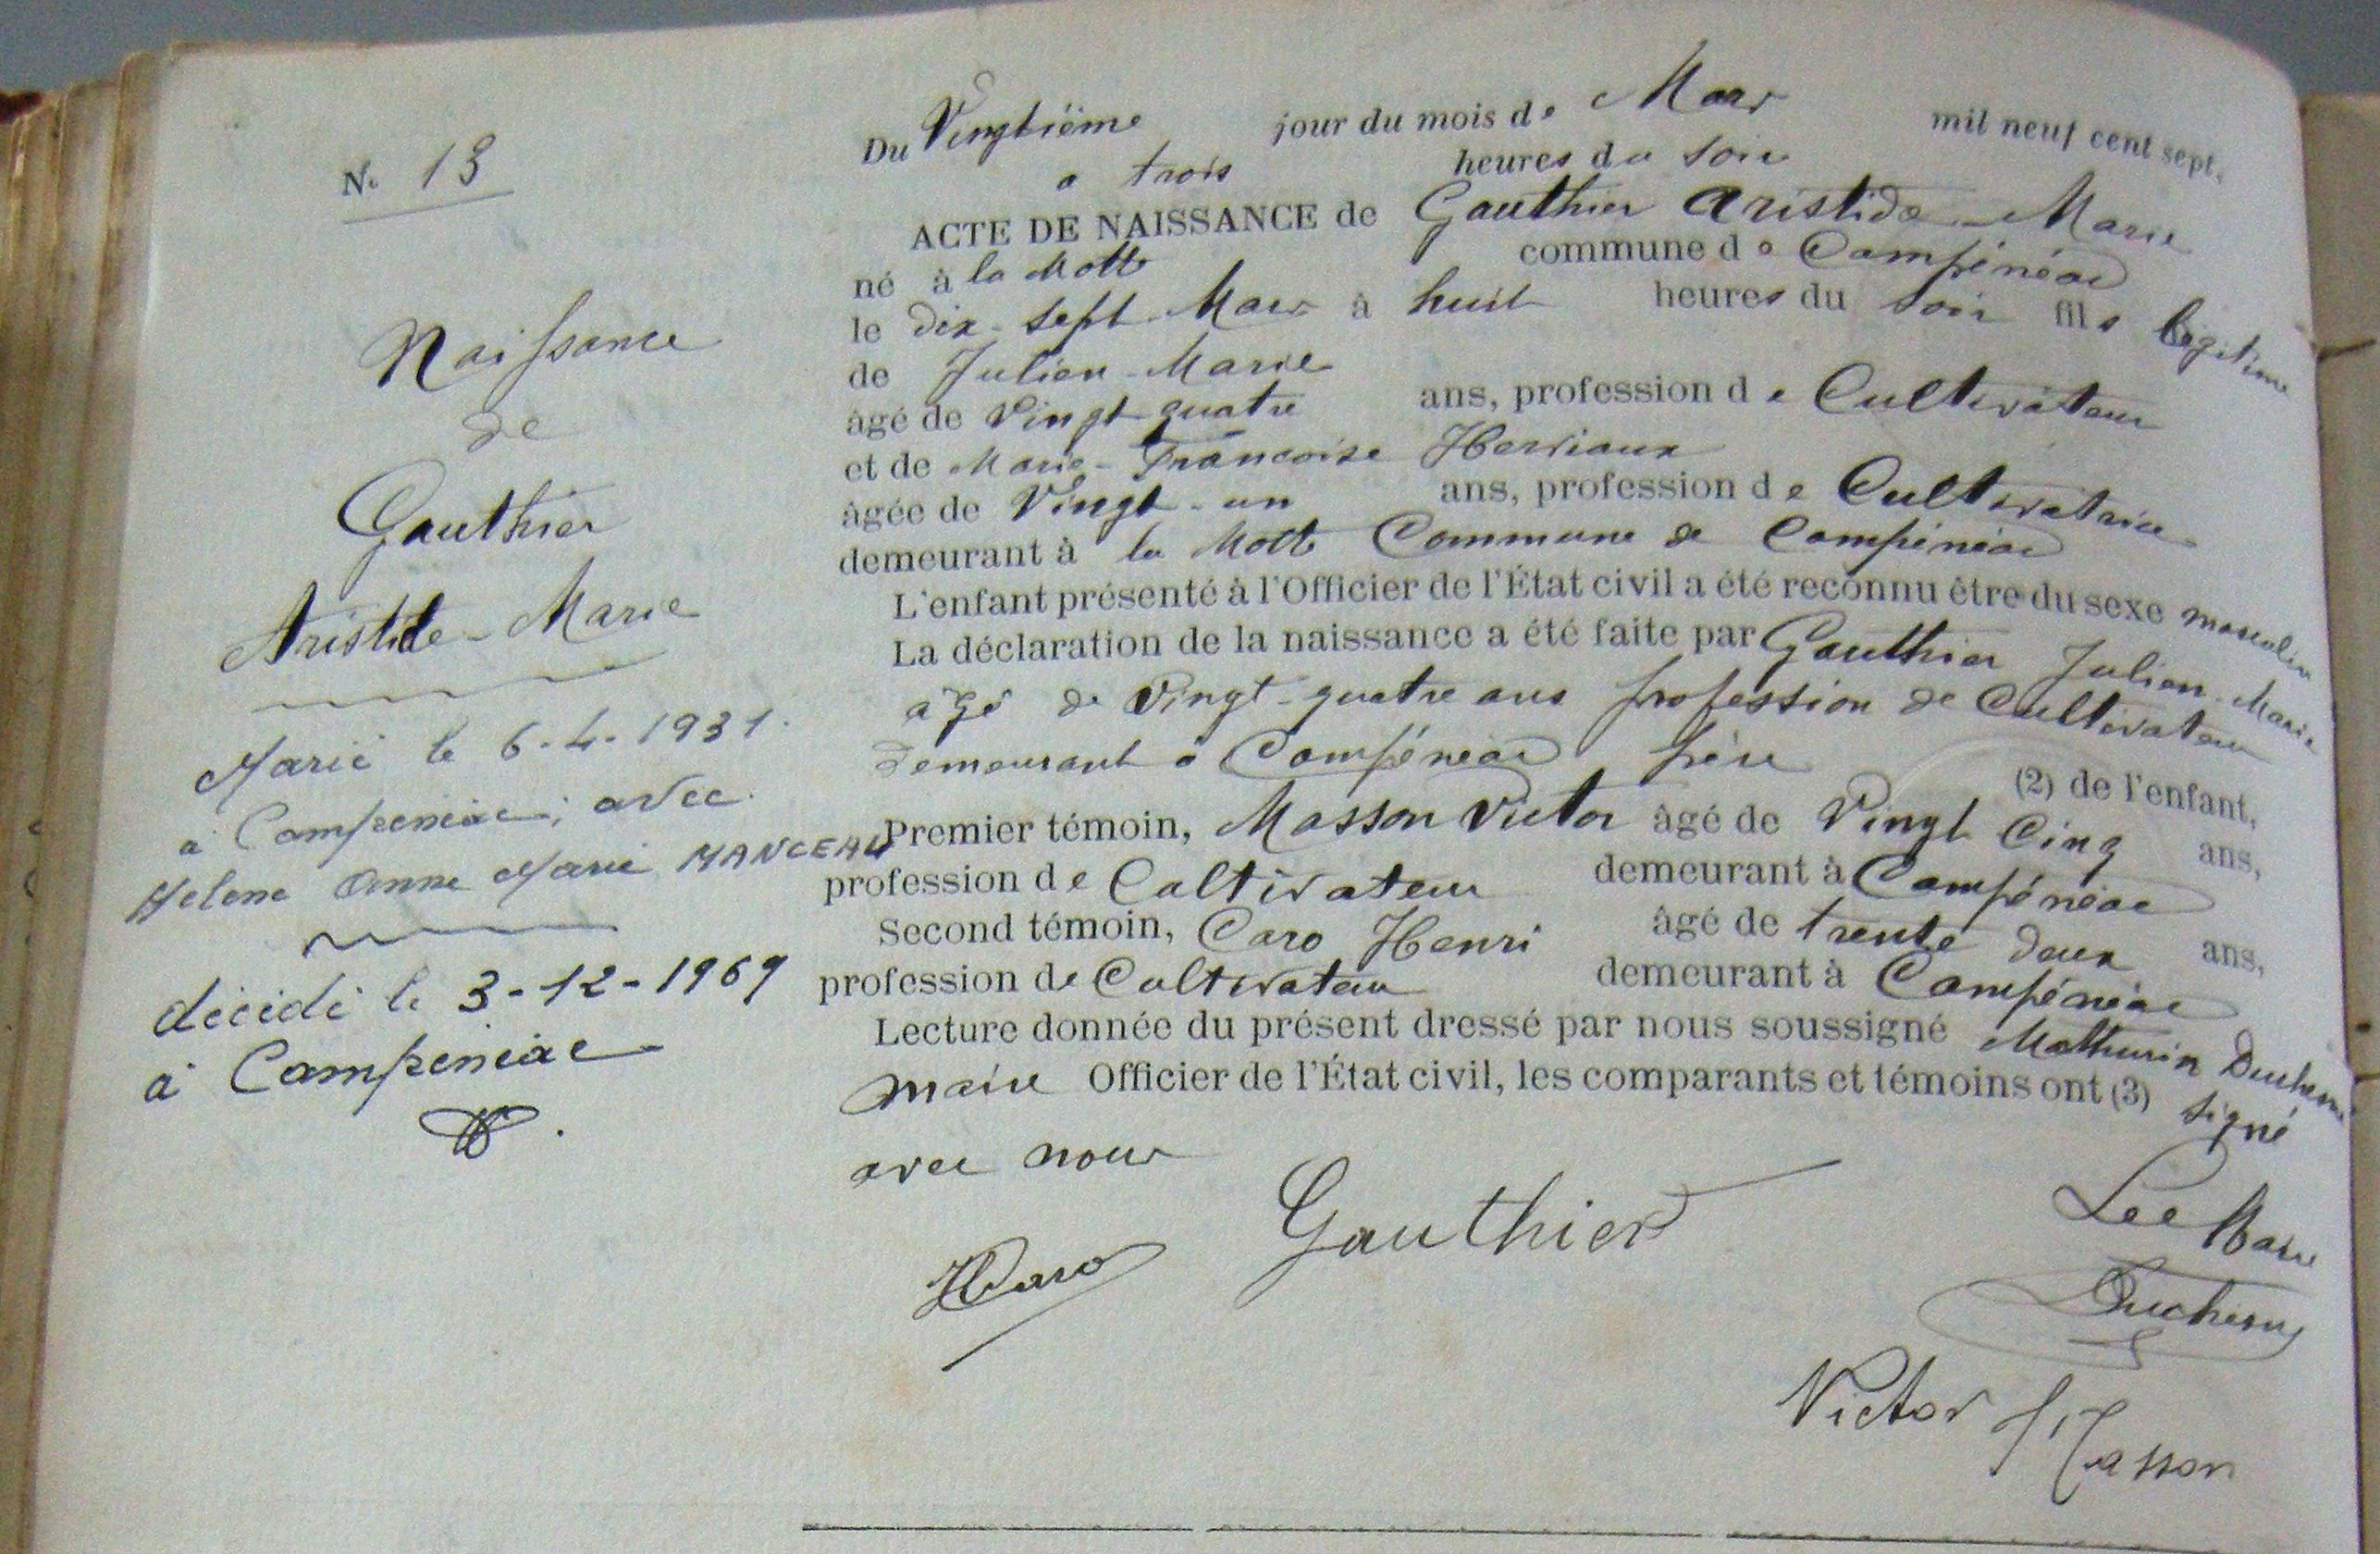 N. 13
Naissance
de
Gauthier
Aristide-Marie
Marié le 6-4-1931.
à Campeneac; avec
Helene Anne Marie MANCEAU
décédé le 3-12-1969
à Campeneac
Du Vingtième jour du mois de Mars mil neuf cent sept,
a trois heures du soir
ACTE DE NAISSANCE de Gauthier Aristide-Marie
né à la Motte commune de Campénéac
le dix-sept Mars à huit heures du soir fils légitime
de Julien-Marie
âgé de Vingt quatre ans, profession de Cultivateur
et de Marie-Francoise Herviaux
âgée de Vingt-un ans, profession de Cultivatrice
demeurant à la Motte Commune de Campénéac
L'enfant présenté à l'Officier de l'État civil a été reconnu être du sexe masculin
La déclaration de la naissance a été faite par Gauthier Julien-Marie
agé de Vingt-quatre ans profession de Cultivateur
demeurant à Campénéac père (2) de l'enfant,
Premier témoin, Masson Victor âgé de Vingt Cinq ans,
profession de Cultivateur demeurant à Campénéac
Second témoin, Caro Henri âgé de trente deux ans,
profession de Cultivateur demeurant à Campénéac
Lecture donnée du présent dressé par nous soussigné Mathurin Duchesne
maire Officier de l'État civil, les comparants et témoins ont (3) signé
avec nous
HCaro Gauthier Lee Maire
Duchesne
Victor Masson